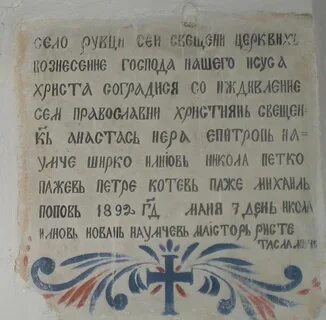 село рувци сеи свещени церквихъ
вознесение господа нашего исуса
христа соградисѧ со иждивление
сем православни християнъ свещен
къ анастасъ иера епитропъ на
умче ширко илиювъ никола петко
пажевъ петре котевъ паже михаилъ
поповъ 1892 гд маия 7 день икола
илиовъ новакъ наумчевъ маисторъ ристе